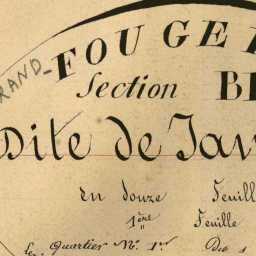 RAND_FOUGE
Section B
Dite de Jav
en douze Feuill
1ère Feuille
Quartier N.° 1er Du